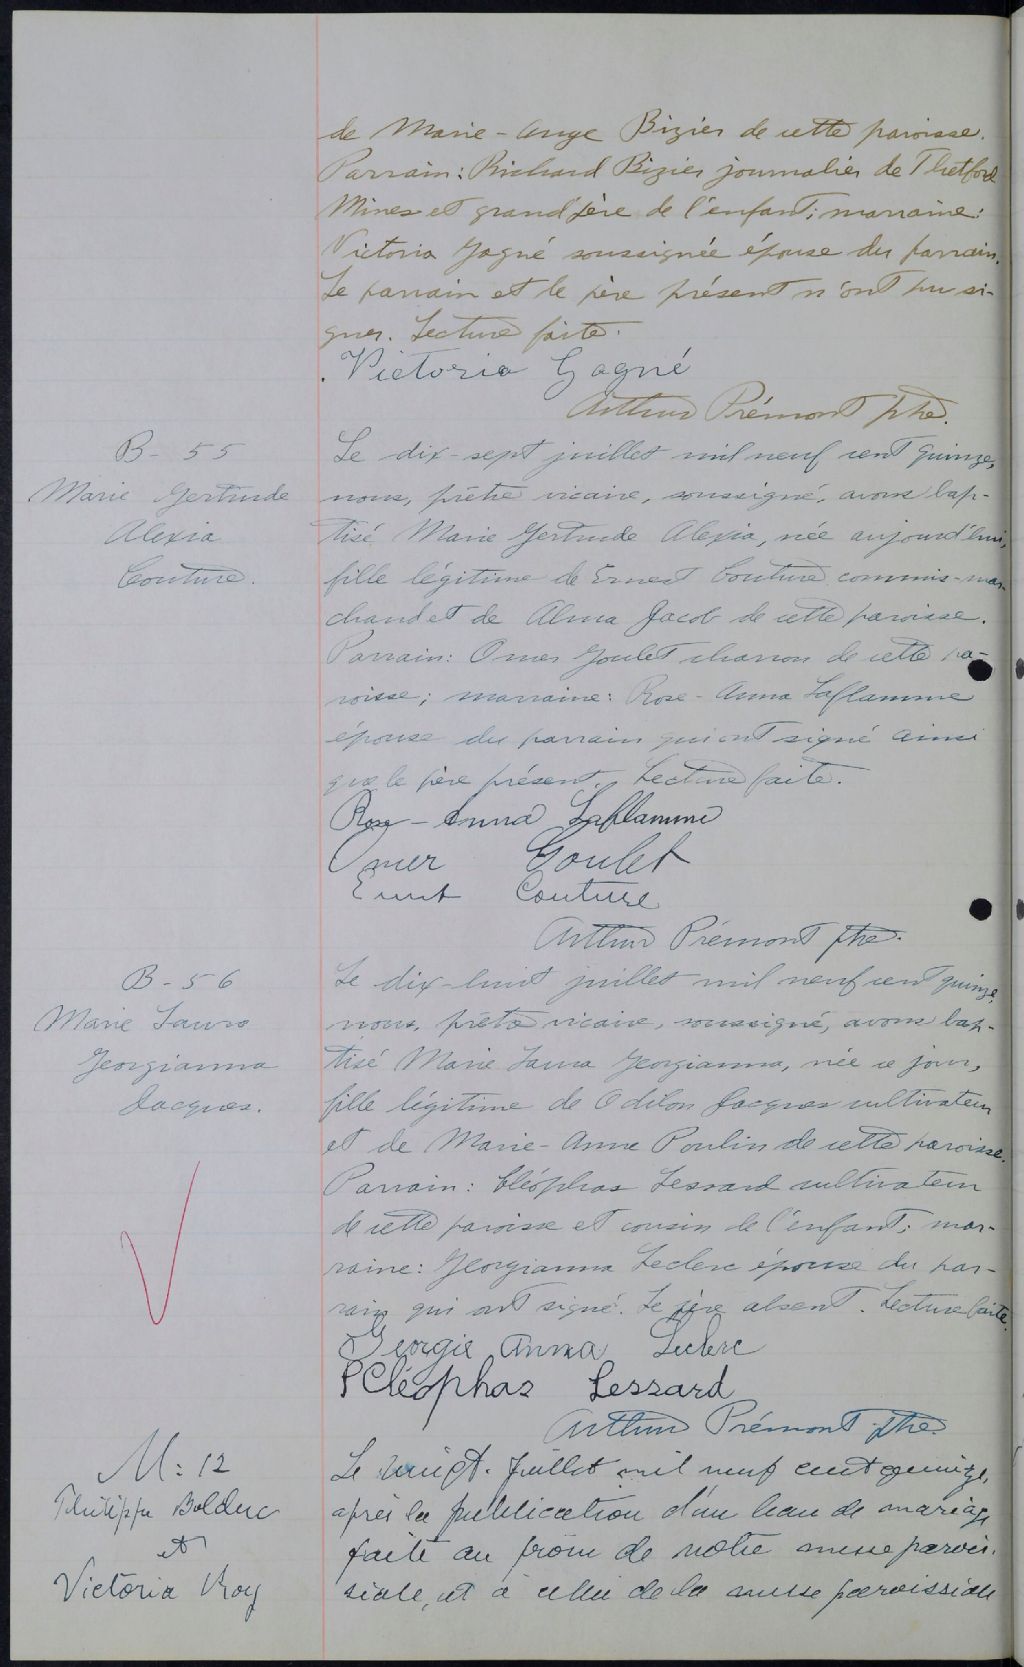 de Marie-Ange Bizier de cette paroisse.
Parrain: Richard Bizier journalier de Thetford
Mines et grand'père de l'enfant; marraine:
Victoria Gagné soussignée épouse du parrain.
Le parrain et le père présent n'ont pu si-
gner. Lecture faite.
Victoria Gagné
Arthur Prémont ptre.
B- 55
Marie Gertrude
Alexia
Couture.
Le dix-sept juillet mil neuf cent quinze,
nous, prêtre vicaire, soussigné, avons bap-
tisé Marie Gertrude Alexia, née aujourd'hui,
fille légitime de Ernest Couture commis-mar-
chand et de Alma Jacob de cette paroisse.
Parrain: Omer Goulet charron de cette pa-
roisse; marraine: Rose-Anna Laflamme
épouse du parrain qui ont signé ainsi
que le père présent. Lecture faite.
Rose-Anna Laflamme
Omer Goulet
Ernest Couture
Arthur Prémont ptre.
B- 56
Marie Laura
Georgianna
Jacques.
Le dix-huit juillet mil neuf cent quinze,
nous, prêtre vicaire, soussigné, avons bap-
tisé Marie Laura Georgianna, née ce jour,
fille légitime de Odilon Jacques cultivateur
et de Marie-Anne Poulin de cette paroisse.
Parrain: Cléophas Lessard cultivateur
de cette paroisse et cousin de l'enfant; mar-
raine: Georgianna Leclerc épouse du par-
rain qui ont signé. Le père absent. Lecture faite.
Georgie Anna Leclerc
P Cléophas Lessard
Arthur Prémont ptre.
M: 12
Philippe Bolduc
et
Victoria Roy
Le vingt. Juillet mil neuf cent quinze,
après la publication d'un ban de mariage
faite au prône de notre messe parois-
siale, et à celui de la messe paroissiale